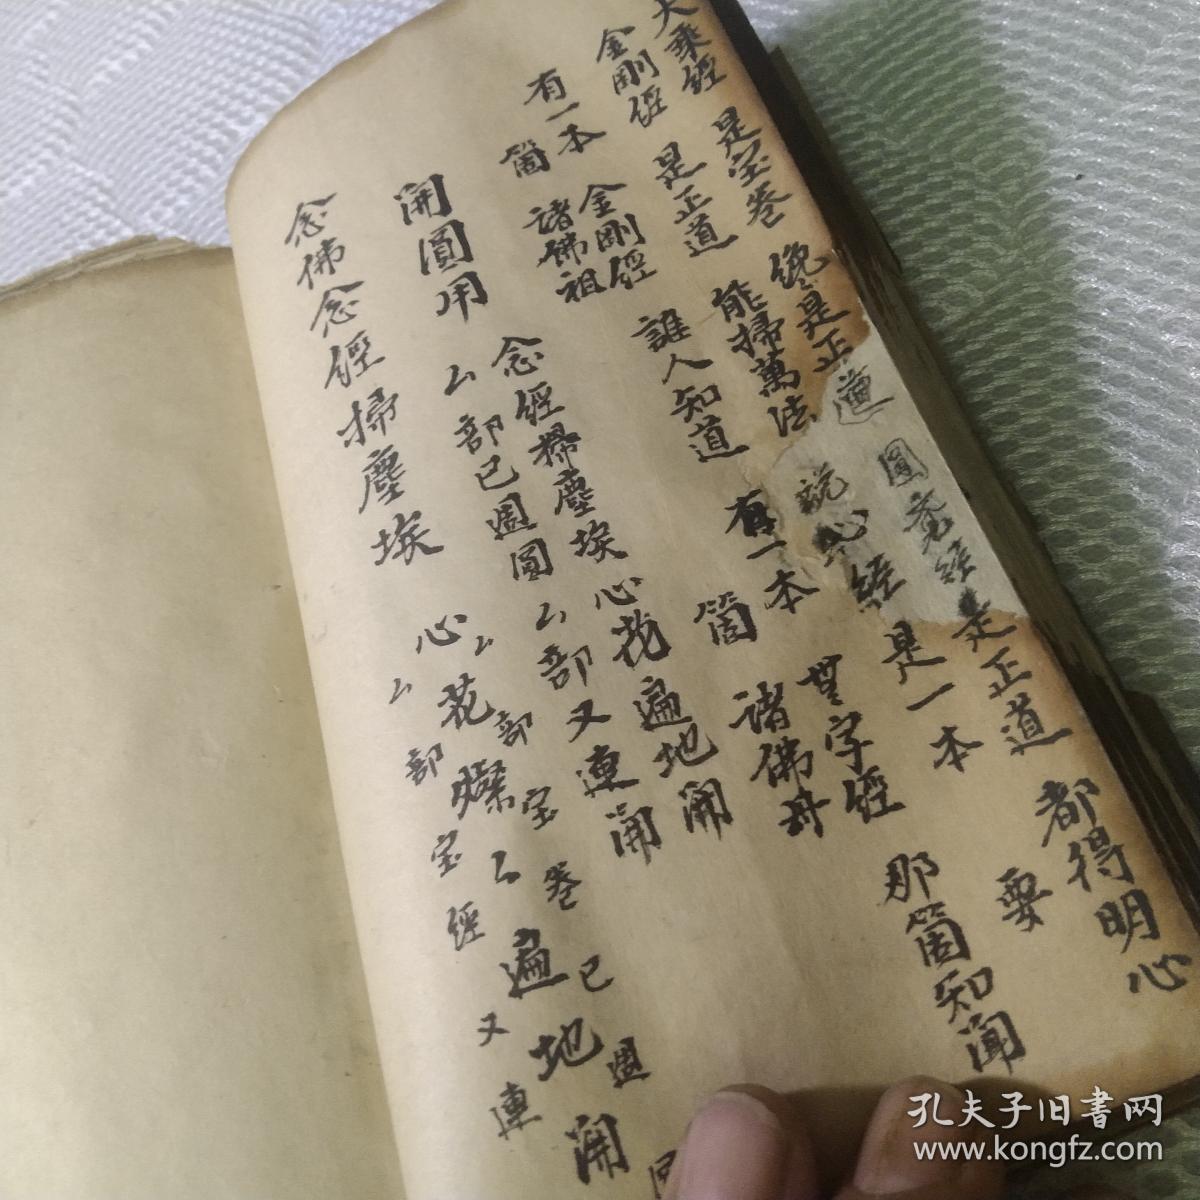 大乘經 是宝卷 總是正道 圓竟經 是正道 都得明心
金剛經 是正道 能掃萬法 説心經 是一本 要
有一本 金剛經 誰人知道 有一本 無字經 那箇知闻
箇 諸佛祖 箇 諸佛母
開圓用 念經掃塵埃 心花遍地開
厶部已週圓 厶部又連開
念佛念經掃塵埃 心花燦 遍地開
厶部宝卷 已週
厶部宝經 又連
孔夫子旧書网
www.kongfz.com